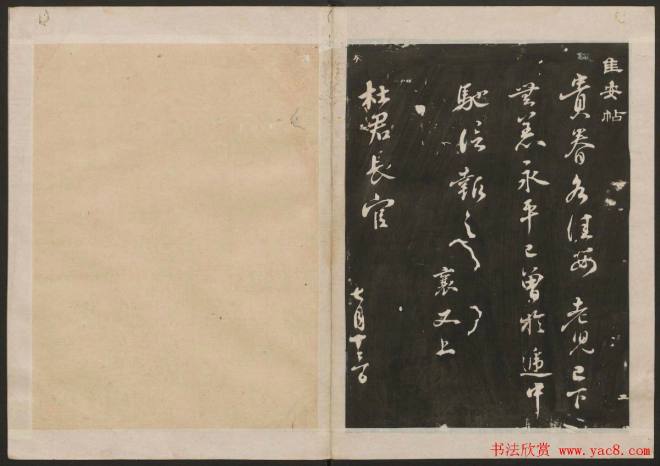 佳安帖
貴眷各佳安 老兒已下
無恙永平已曾於遞中
馳信報之
襄又上
杜君長官
七月十三日
书法欣赏 www.yac8.com